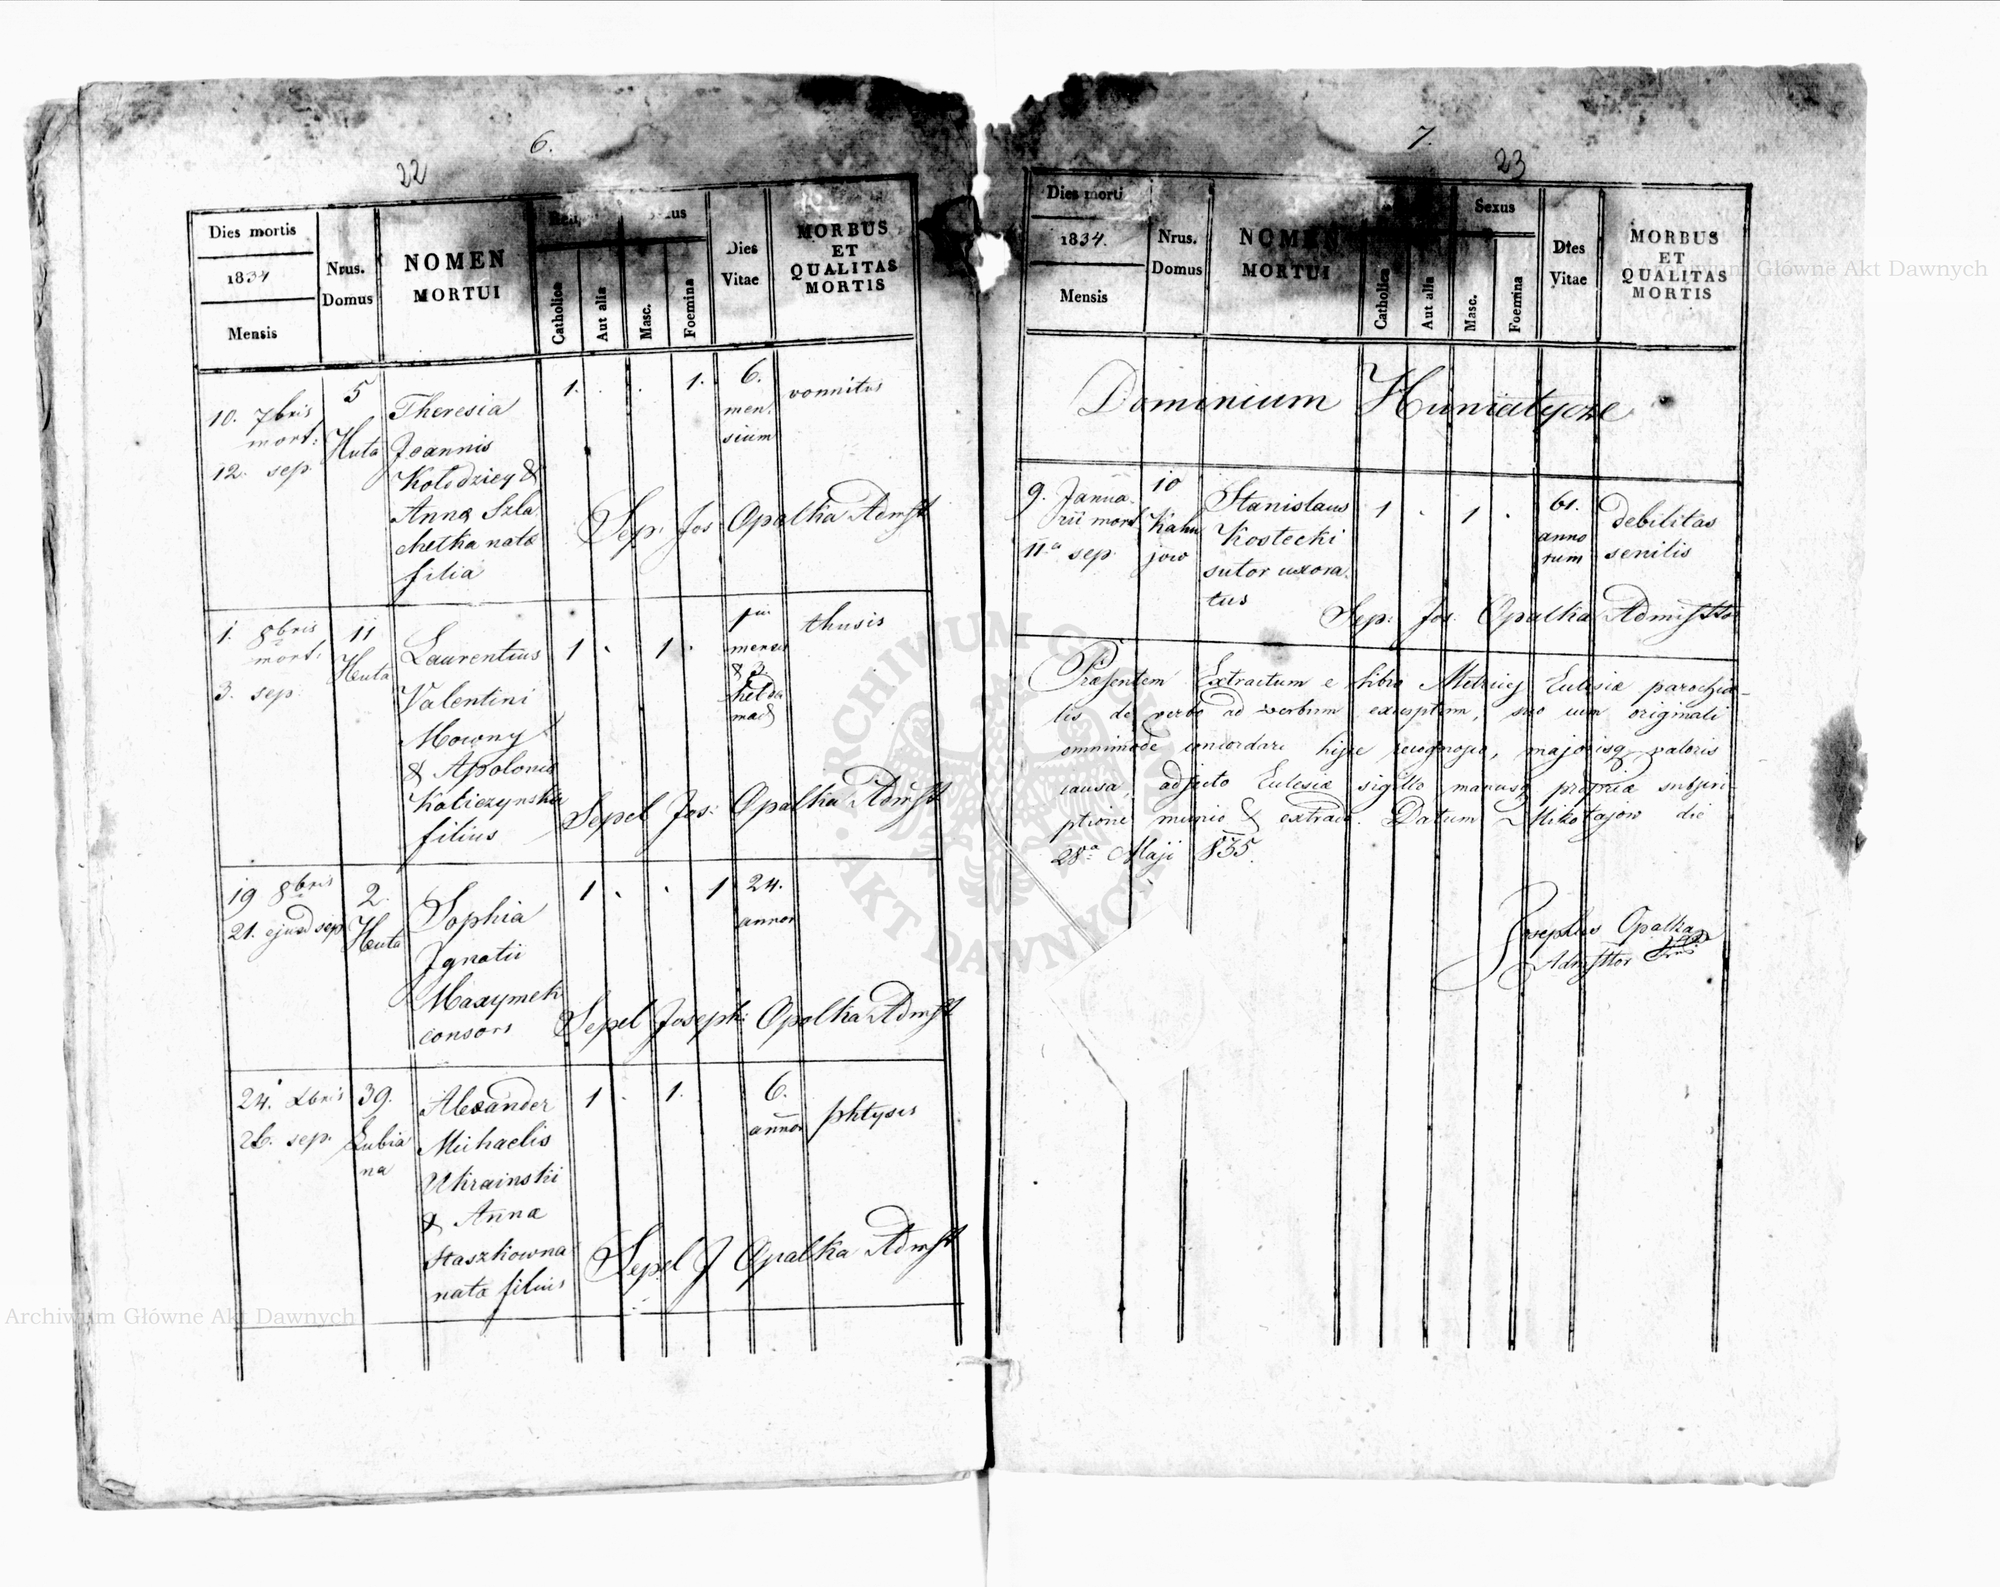 6.
22
Dies mortis
1834
Mensis
Nrus.
Domus
NOMEN
MORTUI
Catholica
Aut alia
Masc.
Foemina
Dies
Vitae
MORBUS
ET
QUALITAS
MORTIS
10. 7bris
mort:
12. sep.
5
Huta
Theresia
Joannis
Kołodziey &
Anna Szla
chetka nata
filia
1. . . 1.
6.
men
sium
vomitus
Sep: Jos: Opalka Admst
1. 8bris
mort:
3. sep:
11
Huta
Laurentius
Valentini
Mowny
& Apolonia
Kaliczynska
filius
1 . 1 .
mensis
& 3
hebdo
mad
thusis
Sepel Jos: Opalka Admst
19 8bris
21. ejusd sep
2.
Huta
Sophia
Ignatii
Maxymek
consors
1 . . 1
24.
annor
Sepel Joseph: Opalka Admst
24. Xbris
26. sep.
39.
Lubia
na
Alexander
Michaelis
Ukrainski
& Anna
Staszkowna
nata filius
1 . 1.
6.
annor
phtysis
Sepel J Opalka Admst
7.
23
Dies morti
1834.
Mensis
Nrus.
Domus
NOMEN
MORTUI
Catholica
Aut alia
Sexus
Masc.
Foemina
Dies
Vitae
MORBUS
ET
QUALITAS
MORTIS
Dominium Huniatycze
9. Janua
rii mort
11a sep.
10
Kahu
jow
Stanislaus
Kostecki
sutor uxora
tus
1 . 1 .
61.
anno
rum
debilitas
senilis
Sep: Jos. Opalka Admsttor
Præsentem Extractum e libro Metrices Eclesiæ parochia-
lis de verbo ad verbum excerptum, suo cum originali
omnimode concordare hisce recognosco, majorisq valoris
causa, adjecto Eclesiæ sigillo manusq propriæ subscri-
ptione munio & extrado. Datum Mikołajow die
28a Maji 835.
Josephus Opalka
Admsttor
Archiwum Główne Akt Dawnych
ARCHIWUM GŁÓWNE
AKT DAWNYCH
Archiwum Główne Akt Dawnych